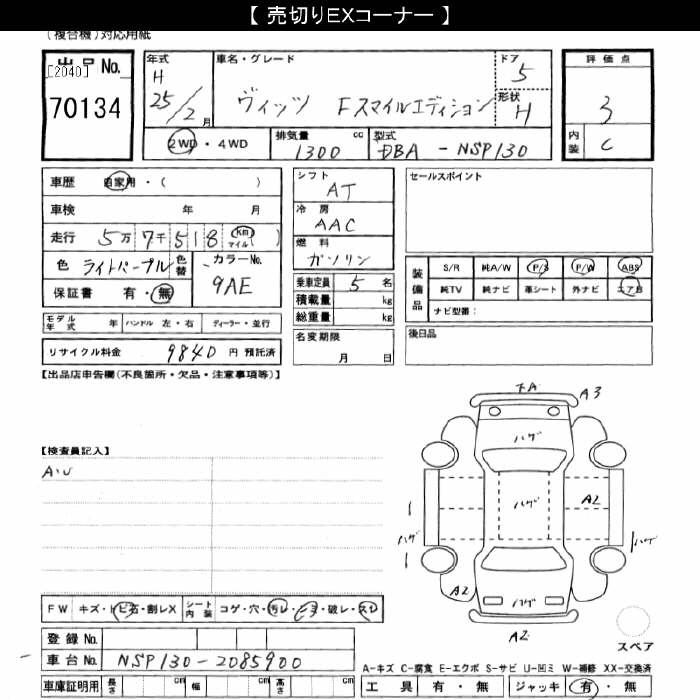 【 売切りEXコーナー 】
(複合機)対応用紙
出品No.
[2040]
70134
年式
H
25/2月
車名・グレード
ヴィッツ Fスマイルエディション
ドア
5
形状
H
評価点
3
内装
C
2WD・4WD
排気量 cc
1300
型式
DBA - NSP130
車歴 自家用・( )
車検 年 月
走行 5万7千518 Km マイル ( )
色 ライトパープル
色替
カラーNo.
9AE
保証書 有・無
シフト
AT
冷房
AAC
燃料
ガソリン
乗車定員 5 名
積載量 kg
総重量 kg
セールスポイント
装備品
S/R 純A/W P/S P/W ABS
純TV 純ナビ 革シート 外ナビ エアB
ナビ型番:
モデル年式 年 ハンドル 左・右 ディーラー・並行
リサイクル料金 9840 円 預託済
名変期限
月 日
後日品
【出品店申告欄(不良箇所・欠品・注意事項等)】
【検査員記入】
A・U
下A
A3
ハゲ
ハゲ
A2
ハゲ
ハゲ
A2
ハゲ
A2
スペア
FW キズ・トビ石・割レX
シート内装 コゲ・穴・汚レ・シミ・破レ・スレ
登録No.
車台No. NSP130-2085900
車庫証明用 長さ cm 幅 cm 高さ cm
A-キズ C-腐食 E-エクボ S-サビ U-凹ミ W-補修 XX-交換済
工具 有・無 ジャッキ 有・無